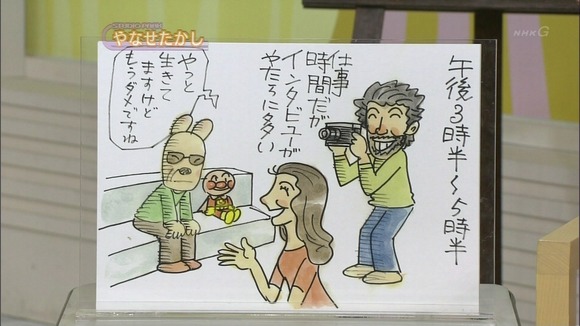 やなせたかし
NHK G
午後3時半〜5時半
仕事
時間だが
インタビューが
やたらに多い
やっと
生きて
ますけど
もうダメですね